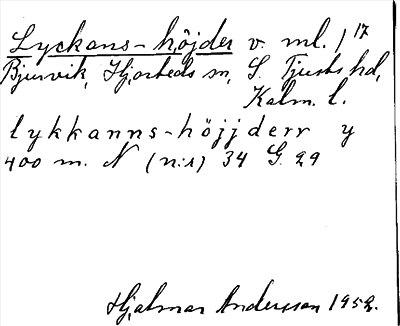 Lyckans-höjder v. ml. 1/17
Bjursvik, Hjorteds sn, S. Tjusts hd,
Kalm. l.
lykkanns-höjjderr y
400 m. N (n:1) 34 G. 29
Hjalmar Andersson 1952.